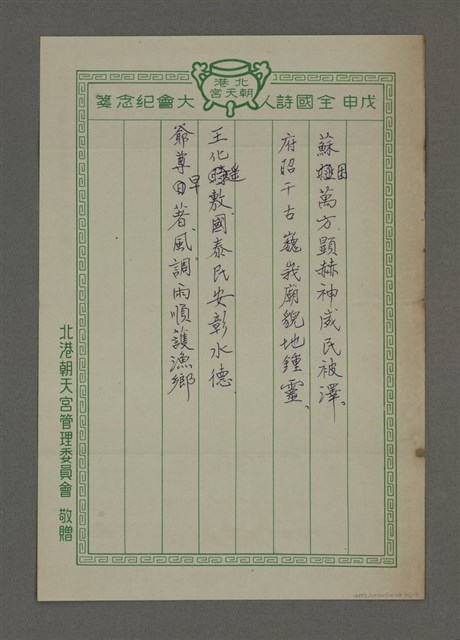 戊申全國詩人大會紀念箋
北港朝天宮
蘇極困萬方顯赫神威民被澤、
府昭千古巍峩廟貌地鍾靈、
王化遙敷國泰民安彰水德
爺尊早著風調雨順護漁鄉
北港朝天宮管理委員會 敬贈